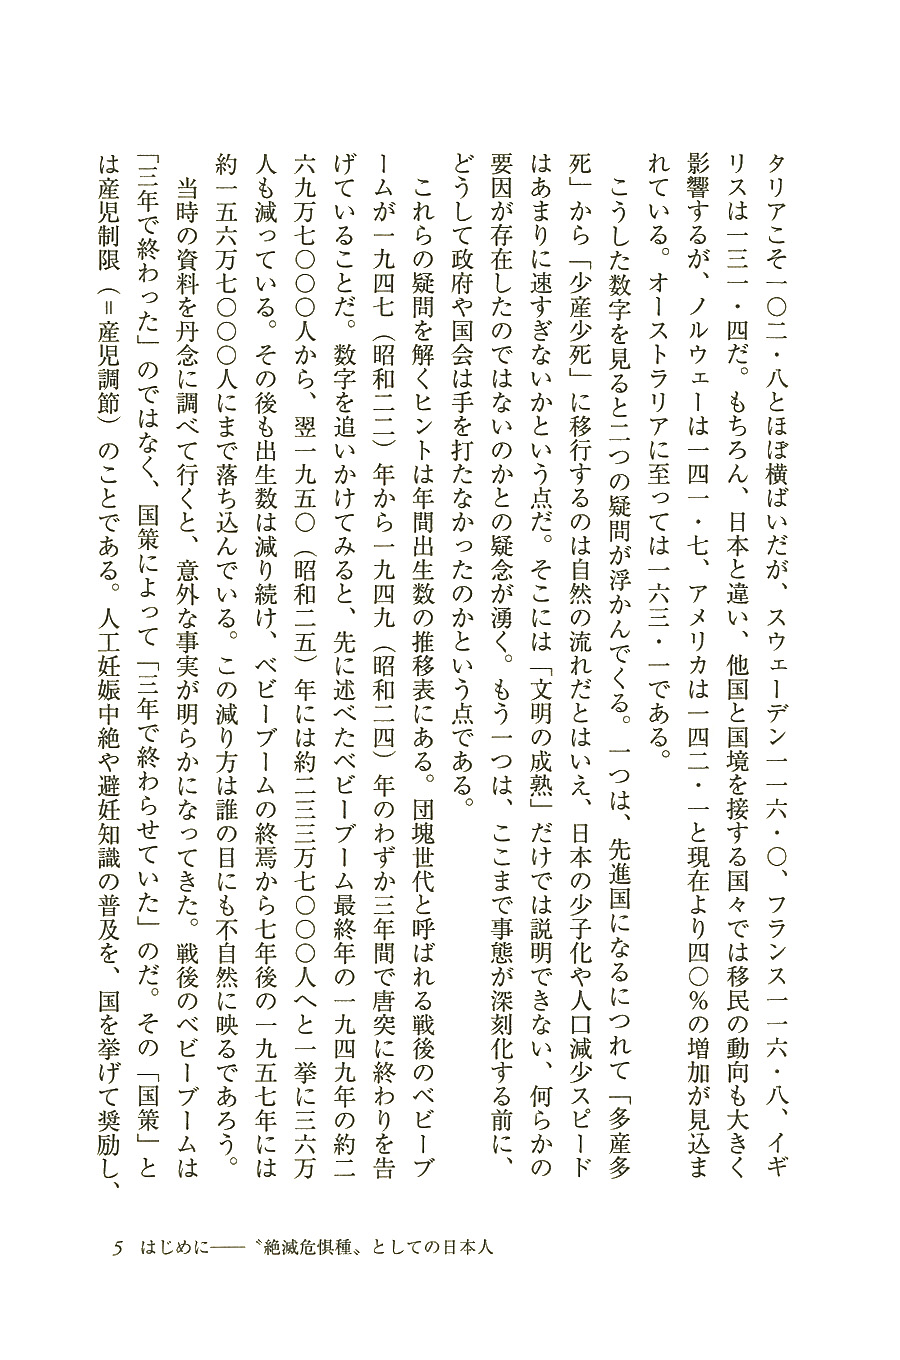 タリアこそ一〇二・八とほぼ横ばいだが、スウェーデン一一六・〇、フランス一一六・八、イギ
リスは一三一・四だ。もちろん、日本と違い、他国と国境を接する国々では移民の動向も大きく
影響するが、ノルウェーは一四一・七、アメリカは一四二・一と現在より四〇％の増加が見込ま
れている。オーストラリアに至っては一六三・一である。
こうした数字を見ると二つの疑問が浮かんでくる。一つは、先進国になるにつれて「多産多
死」から「少産少死」に移行するのは自然の流れだとはいえ、日本の少子化や人口減少スピード
はあまりに速すぎないかという点だ。そこには「文明の成熟」だけでは説明できない、何らかの
要因が存在したのではないのかとの疑念が湧く。もう一つは、ここまで事態が深刻化する前に、
どうして政府や国会は手を打たなかったのかという点である。
これらの疑問を解くヒントは年間出生数の推移表にある。団塊世代と呼ばれる戦後のベビーブ
ームが一九四七（昭和二二）年から一九四九（昭和二四）年のわずか三年間で唐突に終わりを告
げていることだ。数字を追いかけてみると、先に述べたベビーブーム最終年の一九四九年の約二
六九万七〇〇〇人から、翌一九五〇（昭和二五）年には約二三三万七〇〇〇人へと一挙に三六万
人も減っている。その後も出生数は減り続け、ベビーブームの終焉から七年後の一九五七年には
約一五六万七〇〇〇人にまで落ち込んでいる。この減り方は誰の目にも不自然に映るであろう。
当時の資料を丹念に調べて行くと、意外な事実が明らかになってきた。戦後のベビーブームは
「三年で終わった」のではなく、国策によって「三年で終わらせていた」のだ。その「国策」と
は産児制限（＝産児調節）のことである。人工妊娠中絶や避妊知識の普及を、国を挙げて奨励し、
5 はじめに――〝絶滅危惧種〟としての日本人